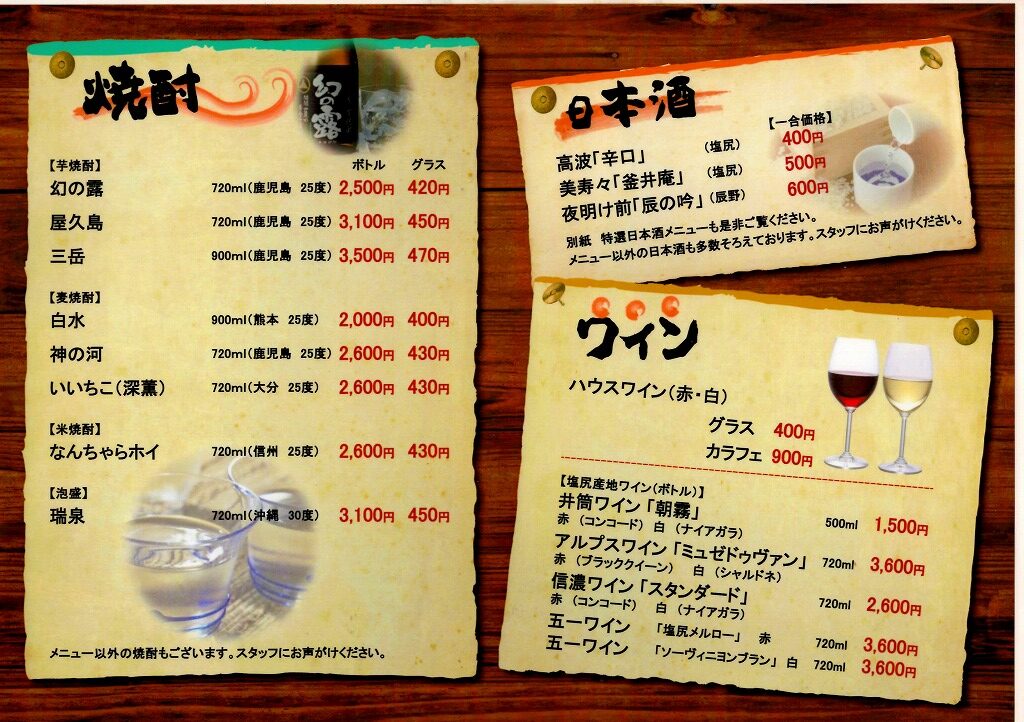 焼酎
幻の露
ボトル グラス
【芋焼酎】
幻の露 720ml(鹿児島 25度) 2,500円 420円
屋久島 720ml(鹿児島 25度) 3,100円 450円
三岳 900ml(鹿児島 25度) 3,500円 470円
【麦焼酎】
白水 900ml(熊本 25度) 2,000円 400円
神の河 720ml(鹿児島 25度) 2,600円 430円
いいちこ(深薫) 720ml(大分 25度) 2,600円 430円
【米焼酎】
なんちゃらホイ 720ml(信州 25度) 2,600円 430円
【泡盛】
瑞泉 720ml(沖縄 30度) 3,100円 450円
メニュー以外の焼酎もございます。スタッフにお声がけください。
日本酒
【一合価格】
高波「辛口」 (塩尻) 400円
美寿々「釜井庵」 (塩尻) 500円
夜明け前「辰の吟」 (辰野) 600円
別紙 特選日本酒メニューも是非ご覧ください。
メニュー以外の日本酒も多数そろえております。スタッフにお声がけください。
ワイン
ハウスワイン(赤・白)
グラス 400円
カラフェ 900円
【塩尻産地ワイン(ボトル)】
井筒ワイン「朝霧」 500ml 1,500円
赤 (コンコード) 白 (ナイアガラ)
アルプスワイン「ミュゼドゥヴァン」 720ml 3,600円
赤 (ブラッククイーン) 白 (シャルドネ)
信濃ワイン「スタンダード」 720ml 2,600円
赤 (コンコード) 白 (ナイアガラ)
五一ワイン 「塩尻メルロー」 赤 720ml 3,600円
五一ワイン 「ソーヴィニヨンブラン」 白 720ml 3,600円